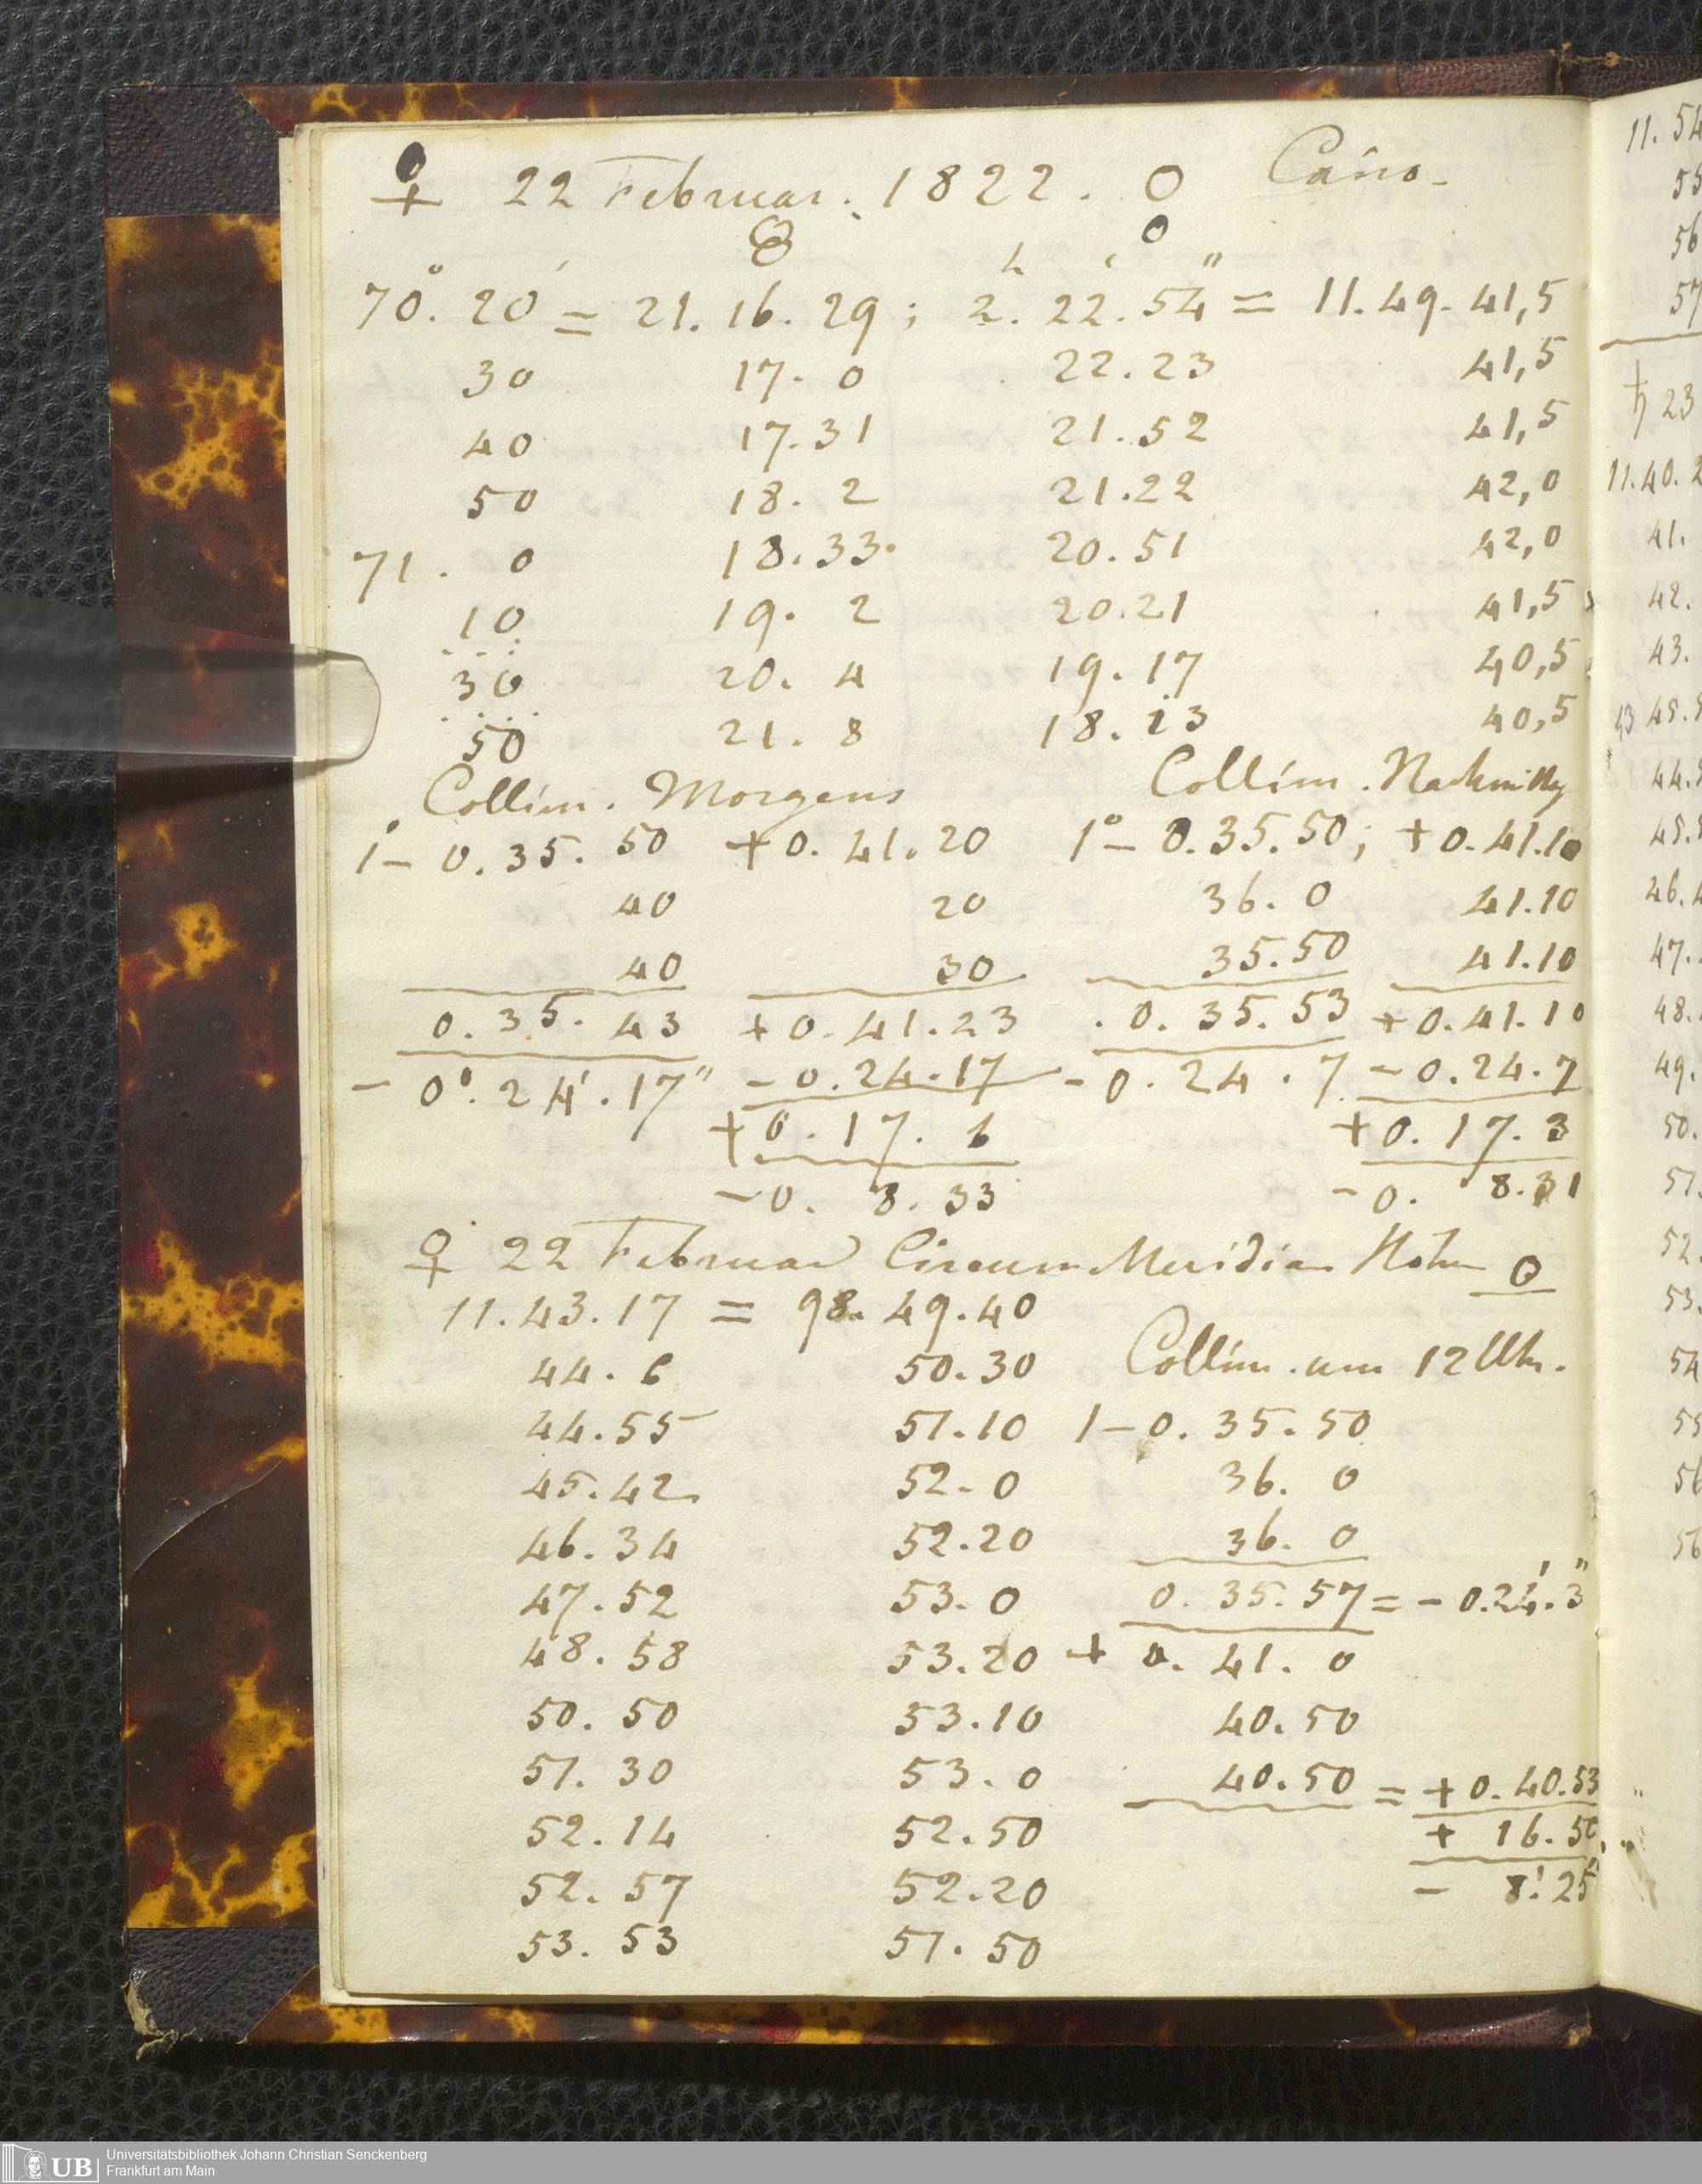 ♀ 22 Februar. 1822. O Cairo.
70°. 20' = 21. 16. 29; 2h. 22'. 54" = 11. 49. 41,5
30 17. 0 22. 23 41,5
40 17. 31 21. 52 41,5
50 18. 2 21. 22 42,0
71. 0 18. 33. 20. 51 42,0
10 19. 2 20. 21 41,5
30 20. 4 19. 17 40,5
50 21. 8 18. 13 40,5
Collim. Morgens Collim. Nachmittg
1°- 0. 35. 50 + 0. 41. 20 1°- 0. 35. 50; + 0. 41. 10
40 20 36. 0 41. 10
40 30 35. 50 41. 10
0. 35. 43 + 0. 41. 23 0. 35. 53 + 0. 41. 10
- 0°. 24'. 17" - 0. 24. 17 - 0. 24. 7 - 0. 24. 7
+ 0. 17. 6 + 0. 17. 3
- 0. 8. 33 - 0. 8. 31
♀ 22 Februar Circum Meridian Höhen O
11. 43. 17 = 98. 49. 40
44. 6 50. 30 Collim. um 12 Uhr.
44. 55 51. 10 1 - 0. 35. 50
45. 42 52. 0 36. 0
46. 34 52. 20 36. 0
47. 52 53. 0 0. 35. 57 = - 0. 24'. 3"
48. 58 53. 20 + 0. 41. 0
50. 50 53. 10 40. 50
51. 30 53. 0 40. 50 = + 0. 40. 53
52. 14 52. 50 + 16. 50
52. 57 52. 20 - 8'. 25"
53. 53 51. 50
11. 54
55
56
57
♄ 23
11. 40. 2
41.
42.
43.
43 45.
44.
45.
46. 4
47.
48.
49.
50.
51.
52.
53.
54
55
56
56
UB Universitätsbibliothek Johann Christian Senckenberg
Frankfurt am Main